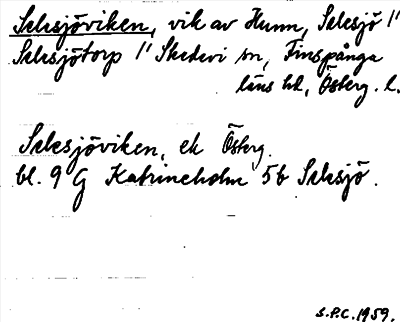 Selesjöviken, vik av Hunn, Selesjö l'
Selesjötorp l' Skedevi sn, Finspånga
läns hd, Österg. l.
Selesjöviken, ek Österg.
bl. 9 G Katrineholm 5b Selesjö.
S.P.C. 1959.